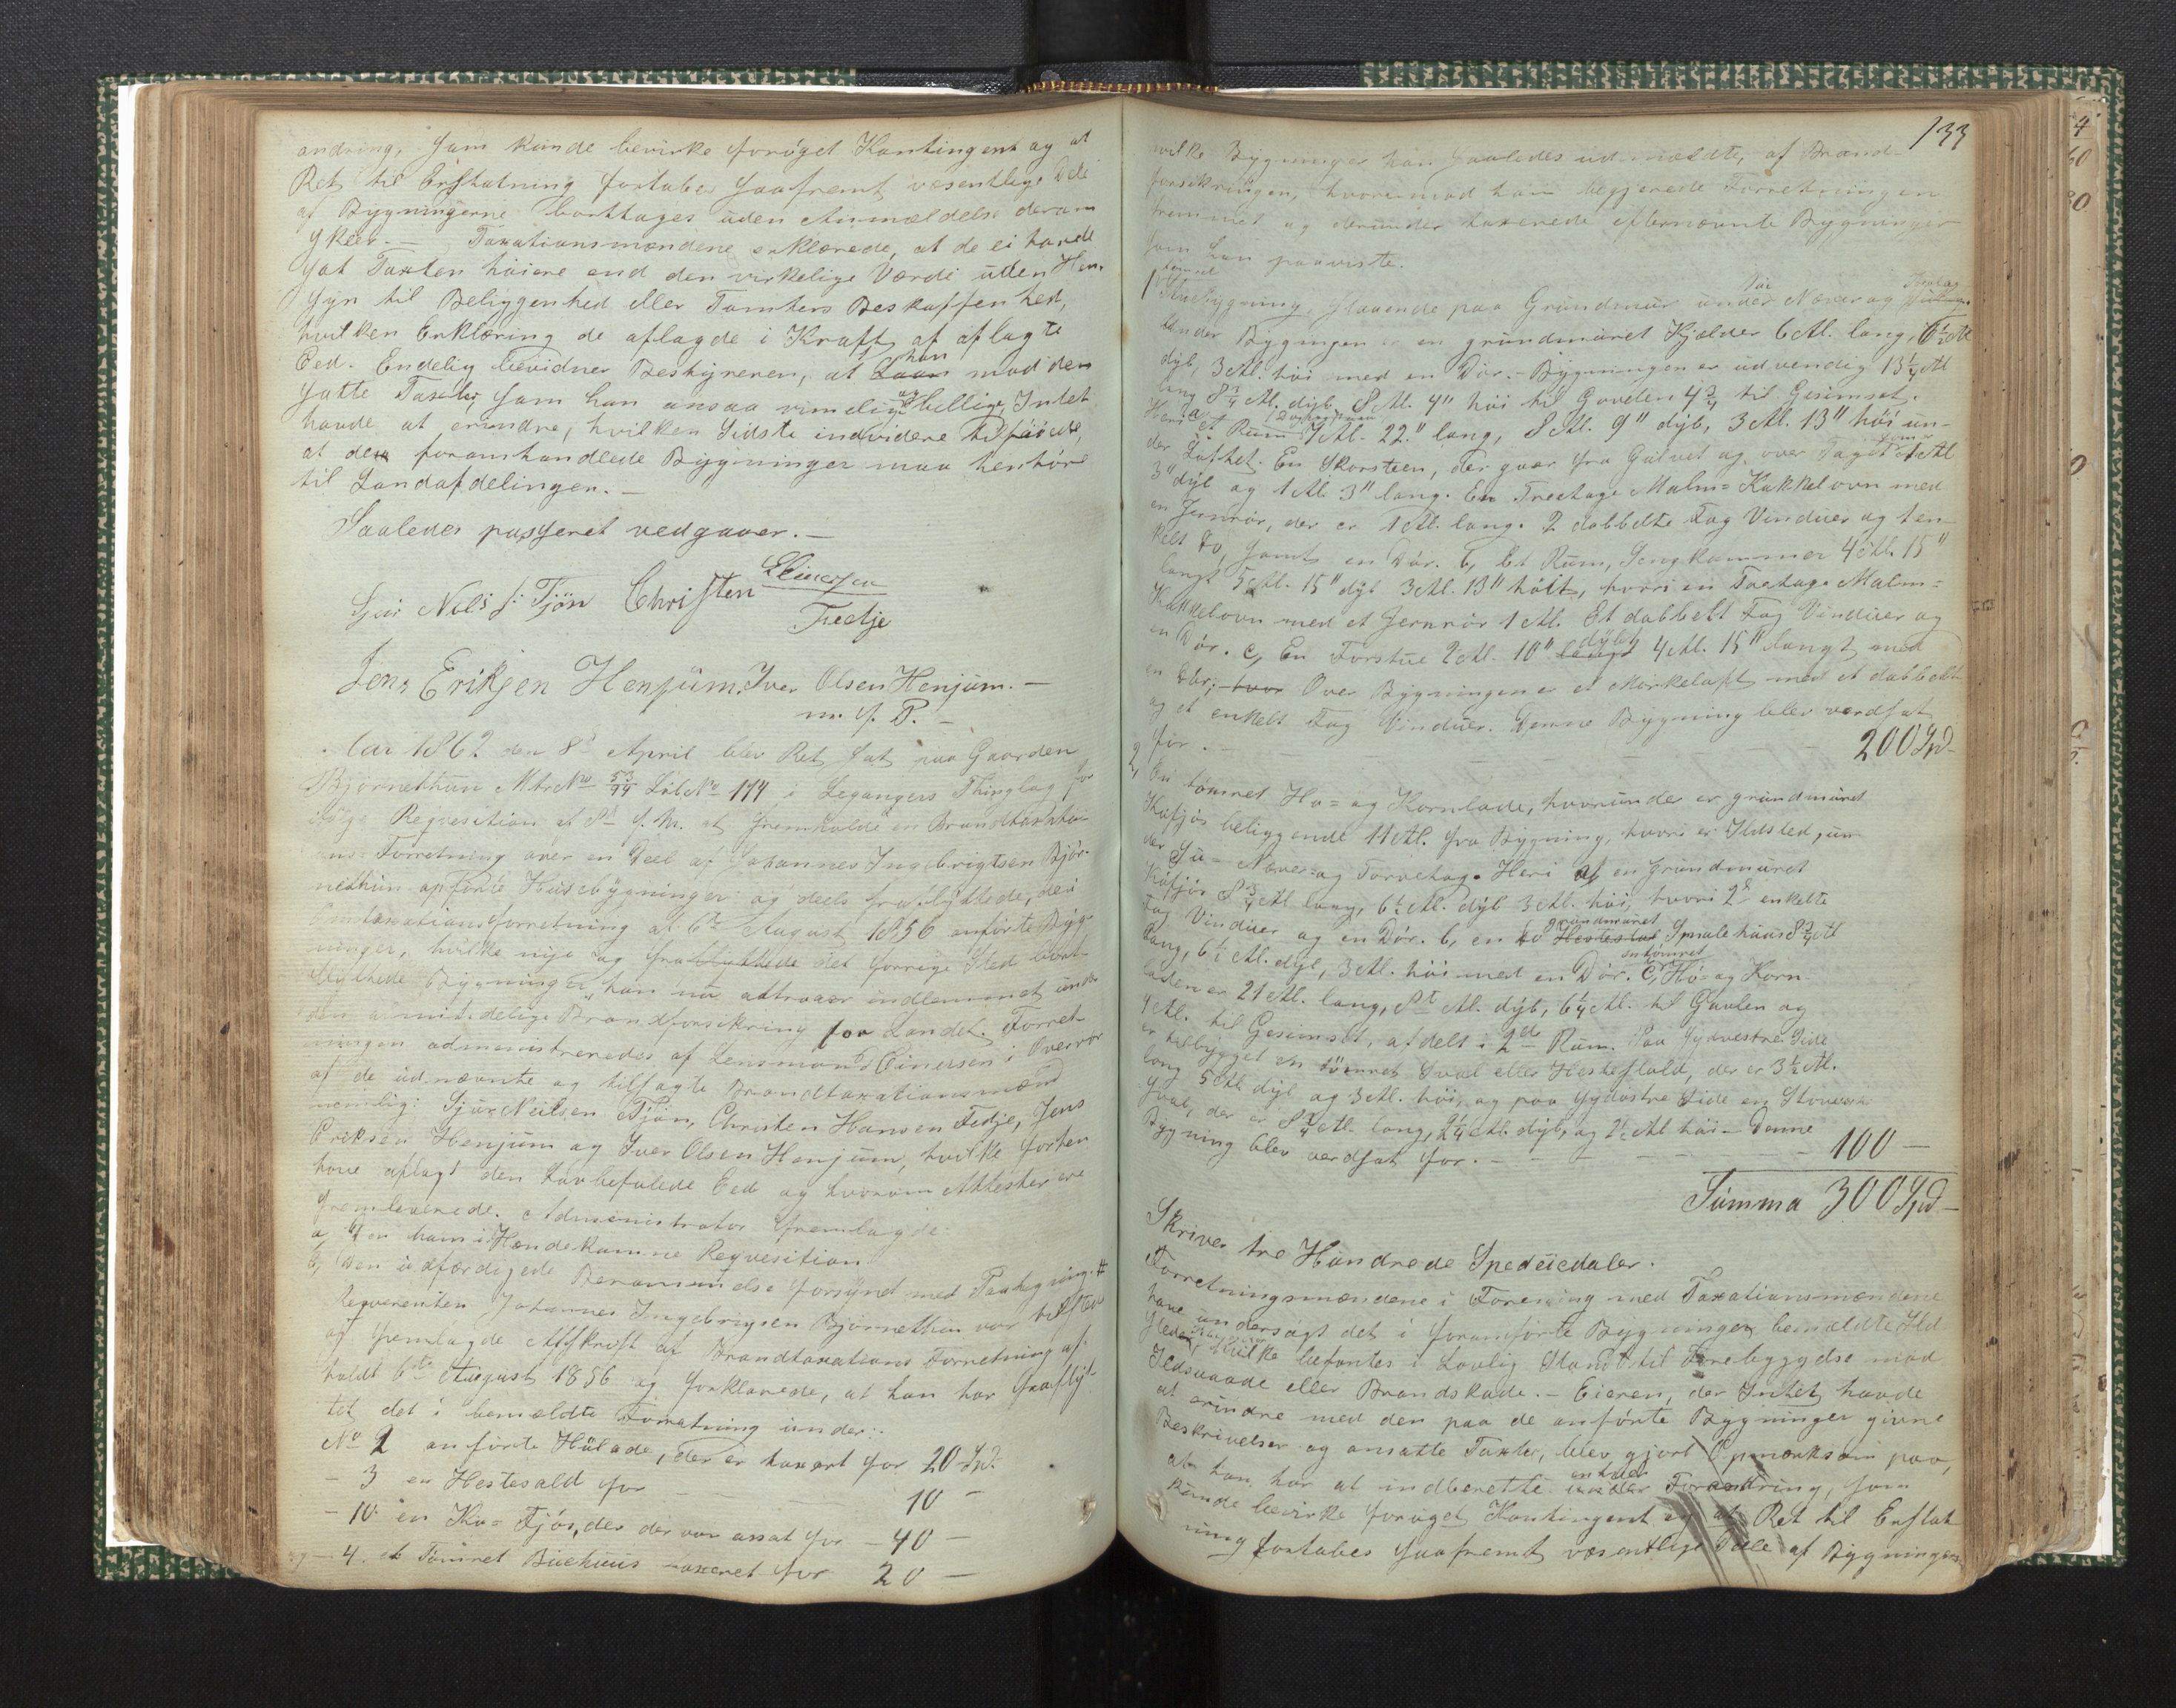 andring, som kunde bevirke forøget Kontingent og at
Ret til Erstatning fortabes saafremt væsentlige Dele
af Bygningerne borttages uden Anmældelse derom
skeer. — Taxationsmændene erklærede, at de ei havde
sat Taxten høiere end den virkelige Værdi uden Hen-
syn til Beliggenhed eller Tomtens Beskaffenhed,
hvilken Erklæring de aflagde i Kraft af aflagte
Eed. Endelig bevidner Bestyreren, at han mod den
satte Taxter, som han ansaa rimelig og billige, Intet
havde at erindre, hvilken Sidste indvidere tilføiede,
at de foranhandlede Bygninger maa henhøre
til Landafdelingen. —
Saaledes passeret vedgaaer. —
Sjur Nils s: Tjøn Christen Eliinesen
Fedje
Jens Eriksen Henjum, Iver Olsen Henjum. —
m. f. P. —
Aar 1862 den 8de April blev Ret sat paa Gaarden
Bjørnethun Mtr No 53/94 Løb No 114 i Legangers Thinglag for
ifølge Reqvesition af 8de f. M. at fremholde en Brandtaxta-
ions-Forretning over en Deel af Johannes Ingebrigtsen Bjør-
nethun opførte Huusebygninger og deels fraflyttede, de i
Omtaxationsforretning af 6te August 1856 anførte Byg-
ninger, hvilke nye og fraflyttede det forrige Sted bort-
flyttede Bygninger han nu attraaer indlemmet under
den almindelige Brandforsikring for Landet. Forret-
ningen administreredes af Lensmand Einersen i Overvær
af de udnævnte og tilsagte Brandtaxationsmænd
nemlig: Sjur Nilsen Tjøn, Christen Hansen Fedje, Jens
Eriksen Henjum og Iver Olsen Henjum, hvilke forhen
have aflagt den lovbefalede Eed og hvorom Attester ere
fremleverede. Administrator fremlagde
a, den ham ihændekomne Reqvesition
b, den udfærdigede Berammelse forsynet med Paategning. #
Reqverenten Johannes Ingebrigsen Bjørnethun var tilsted
og fremlagde Afskrift af Brandtaxations Forretning af-
holdt 6te August 1856 og forklarede, at han har fraflyt-
tet det i bemældte Forretning under:
No 2 anførte Hølade, der er taxert for 20 Spd.
— 3 en Hestesald for 10 —
— 10 en Ko-Fjøs, der der var ansat for — 40 —
— 4. et Tømret Buehuus taxeret for 20 —
133
hvilke Bygninger han saaledes udmeldte, af Brand-
forsikringen, hvorimod han begjerede Forretningen
fremmet og derunder taxerede efternævnte Bygninger
som han paaviste.
1 tømret Stuebygning staaende paa Grundmuur under Næver og Torvtag
Under Bygningen er en grundmuret Kjelder 6 Al. lang, 6½ Al
dyb, 3 Al. høi med en Dør. — Bygningen er udvendig 13¼ Al
lang 8¾ Al. dyb 8 Al. 4" høi til Gavelen 4¾ til Gesimset.
Heri a et Rum 7 Al. 22" lang, 8 Al. 9" dyb, 3 Al. 13" høi un-
der Loftet. En Skorsteen, der gaar fra Gulvet og over Taget som er 1 Al
3" dyb og 1 Al. 3" lang. En Treetage Malm-Kakkelovn med
en Jernrør, der er 1 Al. lang. 2 dobbelte Fag Vinduer og 1 en-
kelt Do, samt en Dør. b, Et Rum, Sengkammer 4 Al. 15"
langt 5 Al. 15" dyb 3 Al. 13" høit, hvori en Toetage Malm-
Kakkelovn med et Jernrør 1 Al. Et dobbelt Fag Vinduer og
en Dør. c, En Forstue 2 Al. 10" dybt 4 Al. 15" langt med
en Dør; Over Bygningen er et Mørkeloft med et dobbelt
og et enkelt Fag Vinduer. Denne Bygning blev værdsat
for. — — — — 200 Spd —
2, En tømret Hø- og Kornlade, hvorunder er grundmuret
Kofjøs beliggende 11 Al. fra Bygning, hvori er Ildsted, un-
der Su- Næver- og Torvetag. Heri af en grundmuret
Kofjøs 8¾ Al lang, 6½ Al. dyb 3 Al. høi, hvori 2de enkelte
Fag Vinduer og en Dør. b, en grundmuret Smalehuus 8¾ Al
lang, 6½ Al. dyb, 3 Al. høi med en Dør. c, Hø- og Korn-
laden er 21 Al. lang, 8½ Al. dyb, 6¼ Al. til Gavlen og
4 Al. til Gesimset, afdelt i 2de Rum. Paa Sydvestre Side
er tilbygget en tømret Sval eller Hestestald, der er 3½ Al.
lang 5 Al dyb og 3 Al. høi, og paa Sydøstre Side en
Sval, der er 8¾ Al. lang, 2¼ Al. dyb, og 2½ Al høi — Denne
Bygning blev værdsat for. — — — — 100 —
Summa 300 Spd —
Skriver tre Hundrede Speduedaler.
Forretningsmændene i Forening med Taxationsmændene
have undersøgt det i foranførte Bygninger bemeldte Ild-
steder, hvilke befantes i Lovlig Stand til Forebyggelse mod
Ildsvaade eller Brandskade. — Eieren, der Intet havde
at erindre med den paa de anførte Bygninger givne
Beskrivelser og ansatte Taxter, blev gjort Opmerksom paa,
at han har at indberette enhver Forandring, som
kunde bevirke forøget Kontingent og at Ret til Erstat-
ning fortabes saafremt væsentlige Dele af Bygninger